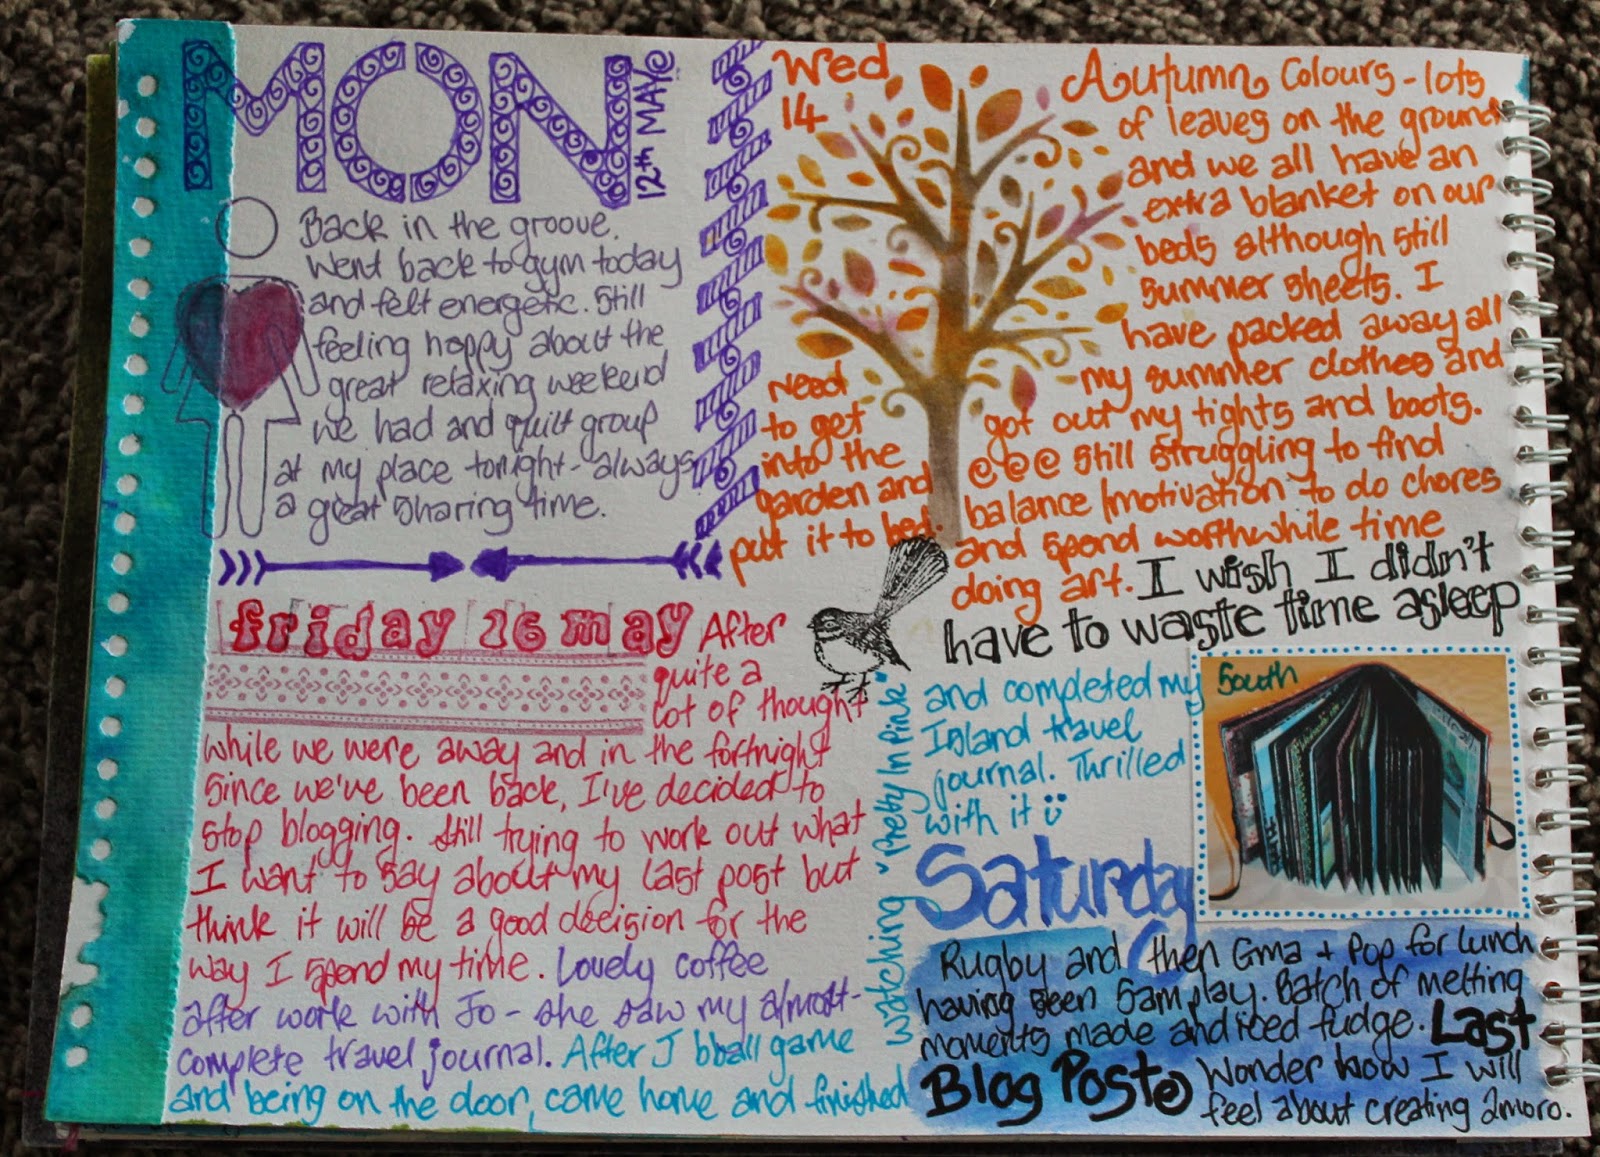 MON
12th MAY
Back in the groove.
Went back to gym today
and felt energetic. Still
feeling happy about the
great relaxing weekend
we had and quilt group
at my place tonight - always
a great sharing time.
Wed
14
Autumn Colours - lots
of leaves on the ground
and we all have an
extra blanket on our
beds although still
summer sheets. I
have packed away all
my summer clothes and
got out my tights and boots.
@@@ Still struggling to find
balance/motivation to do chores
and spend worthwhile time
doing art. I wish I didn't
have to waste time asleep
Need
to get
into the
garden and
put it to bed.
friday 16 may After
quite a
lot of thought
while we were away and in the fortnight
since we've been back, I've decided to
stop blogging. Still trying to work out what
I want to say about my last post but
think it will be a good decision for the
way I spend my time. Lovely coffee
after work with Jo - she saw my almost-
complete travel journal. After J bball game
and being on the door, came home and finished
watching "Pretty In Pink"
and completed my South
Island travel
journal. Thrilled
with it
Saturday
Rugby and then Gma + Pop for lunch
having seen Sam play. Batch of melting
moments made and iced fudge. Last
Blog Post Wonder how I will
feel about creating 2moro.